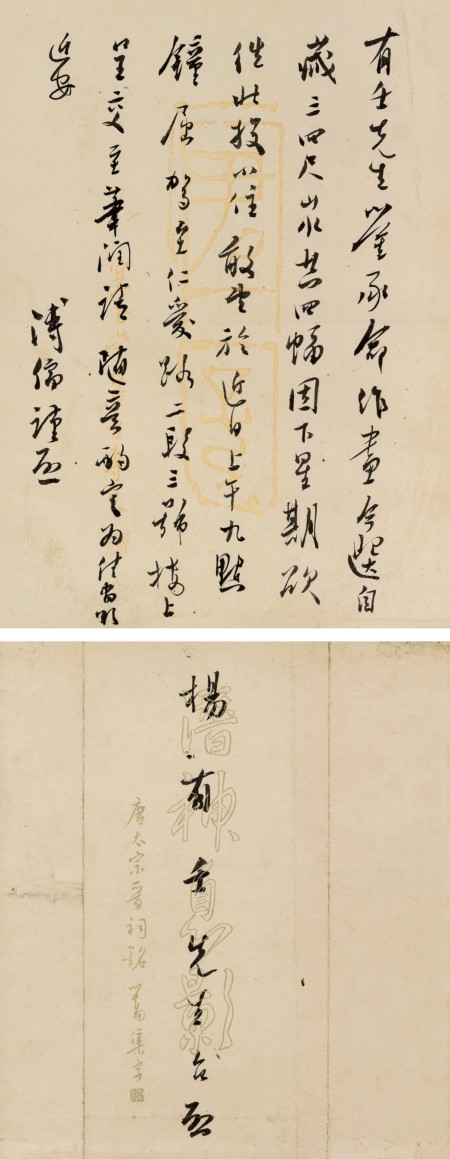 有壬先生鉴承命作画今选自
藏三四尺山水共四幅因下星期欲
往北投小住敢望於近日上午九點
鐘屈驾至仁爱路二段三號楼上
呈交至筆润請随意酌定为佳
近安
溥儒謹啟
楊有壬先生台啟
唐太宗晋祠銘 集字